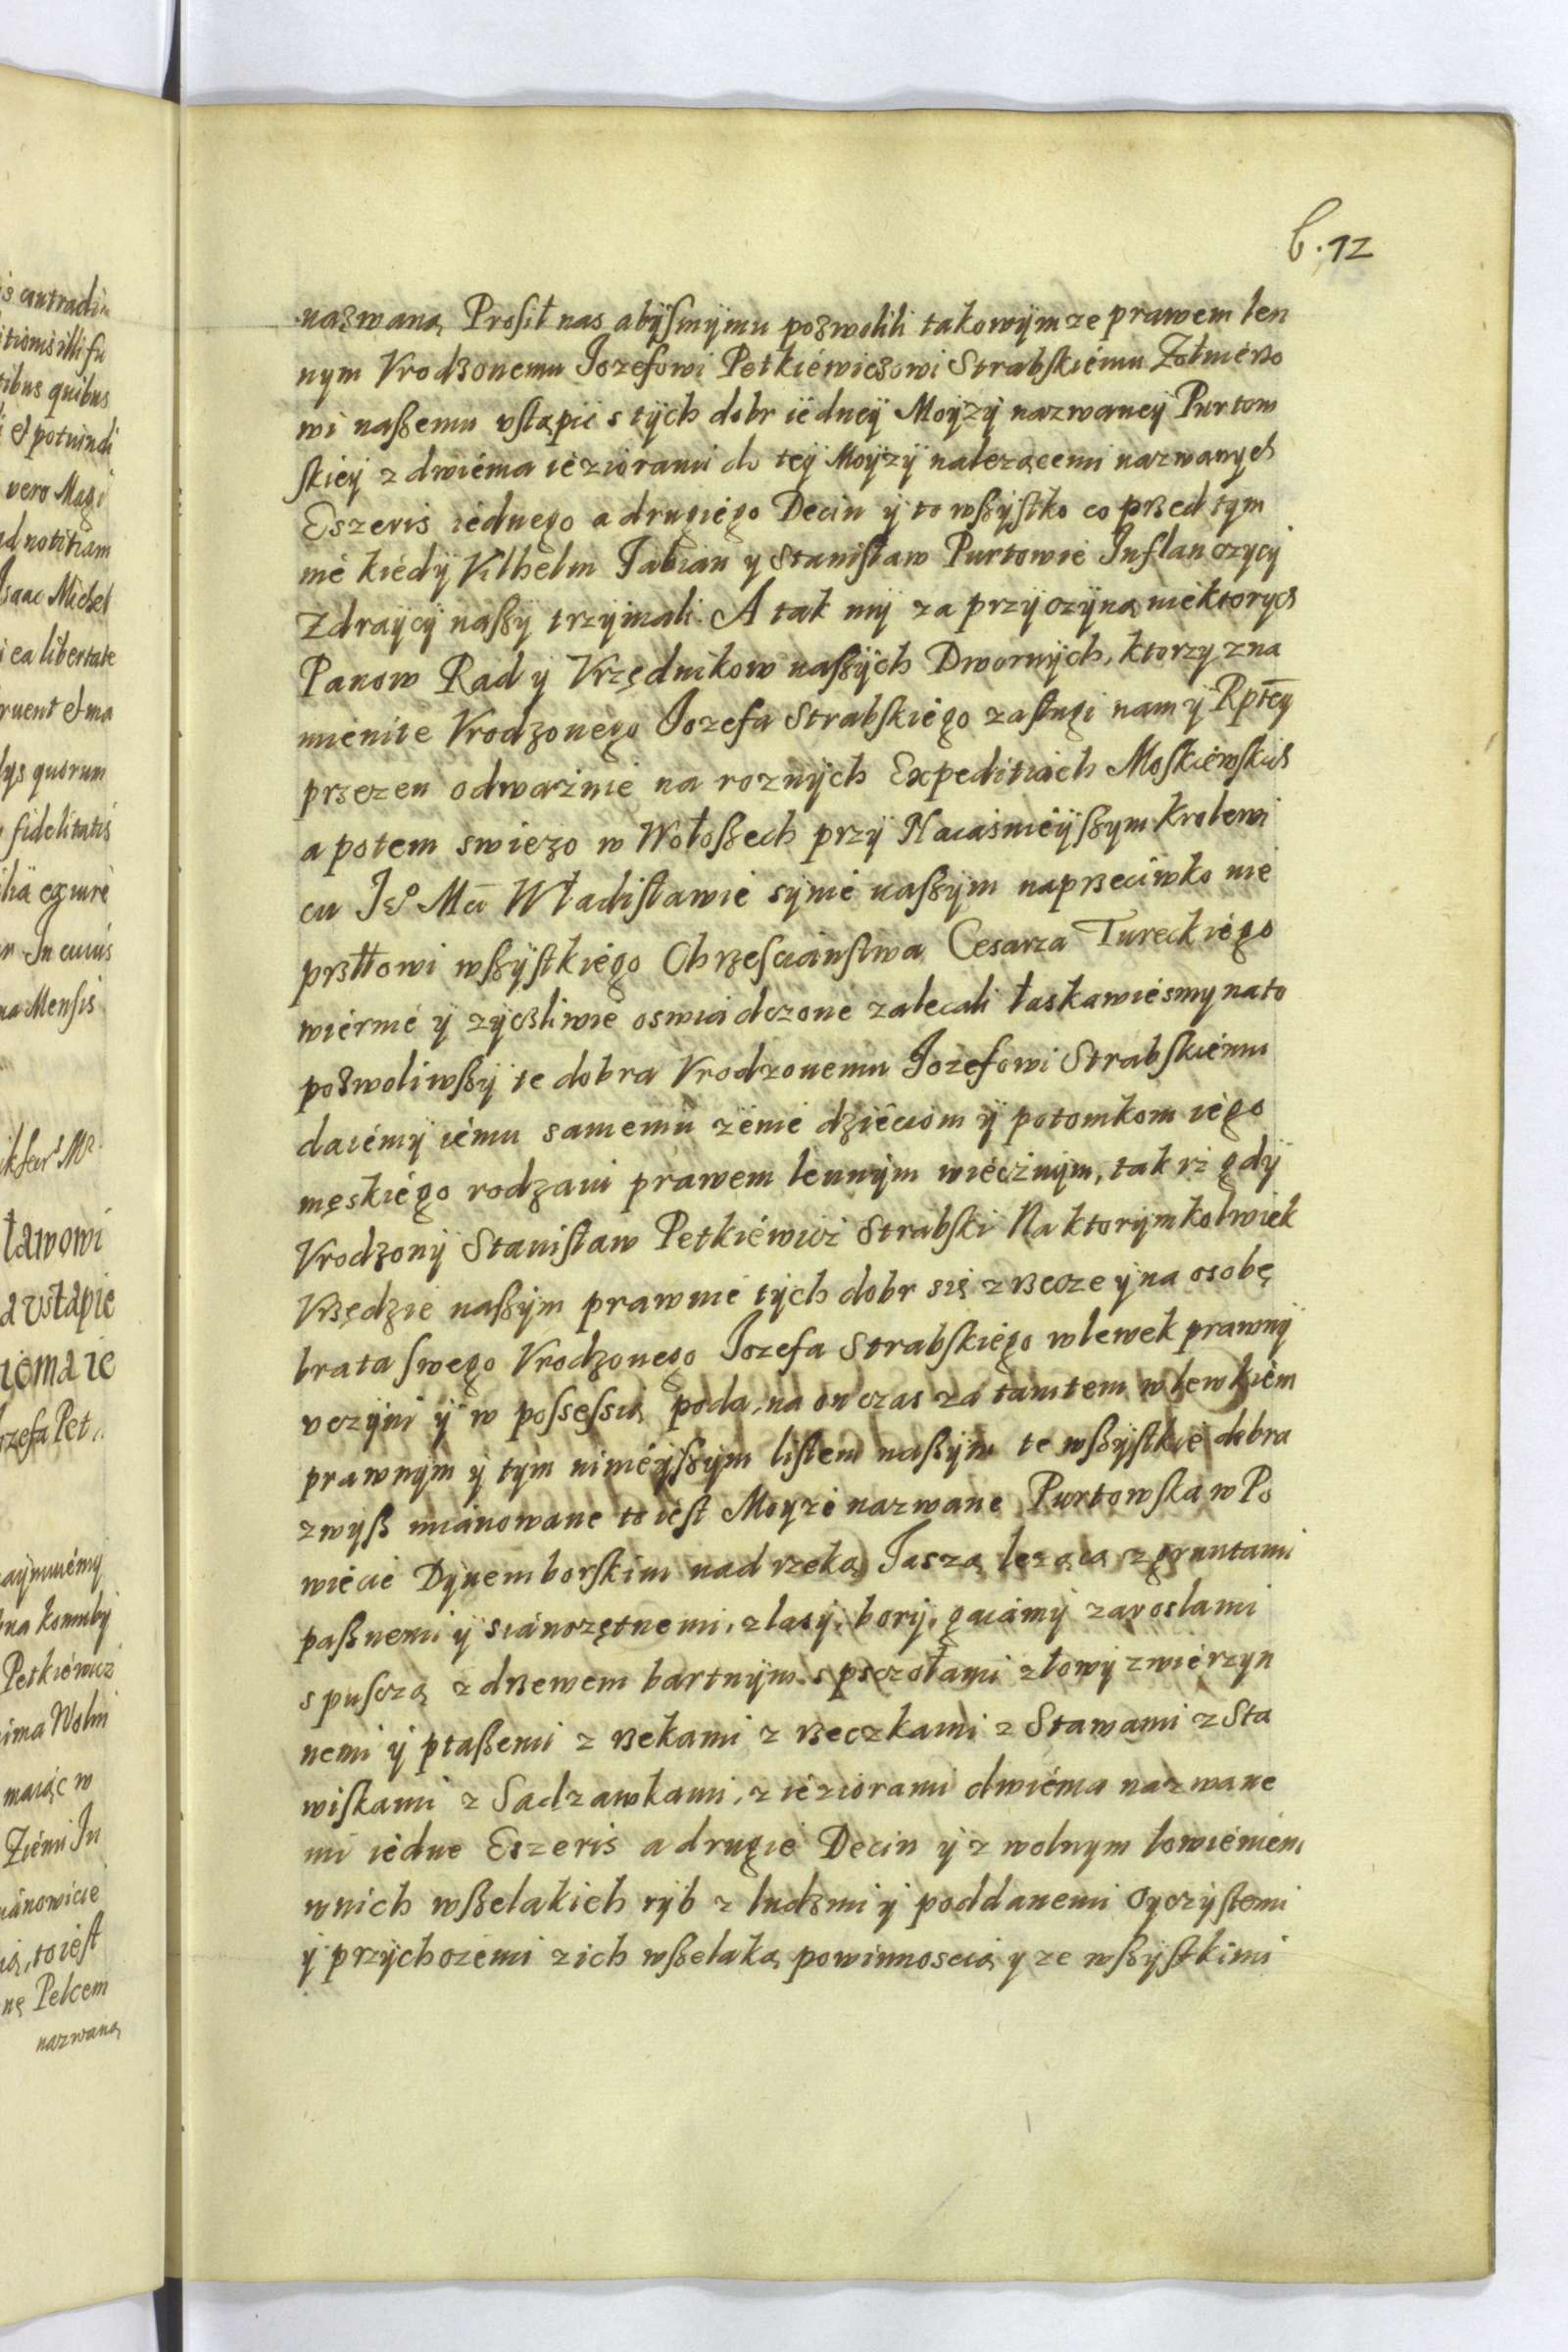 b. 12
is contradic
itionis illi fu
tibus quibus
i et potuindi
vero Magi
ad notitiam
Isaac Michel
i ea libertate
ruent et ma
lys quorum
fidelitatis
In cuius
na Mensis
ławowi
a vstąpie
iema ie
ozefa Pet
aiynuiémÿ
Petkiéwicz
ima Wolm
maiąc w
Ziémi In
nánowicie
ią, to iést
nę Pelcem
nazwaną
nazwaną Prosił nas abÿsmÿ mu pozwolili takowÿm ze prawem len
nym Vrodzonemu Jozefowi Petkiéwiczowi Strabskiému Żołnierzo
wi naßemu vstąpić s tÿch dobr iédneÿ Moÿzÿ nazwaneÿ Purtow
skiéÿ z dwiéma iéziorami do teÿ Moÿzÿ nalezącemi nazwanych
Eszeris iédnego a drugiégo Decin ÿ to wßÿstko co przed tym
nié kiédÿ Vilhelm Fabian y Stanisław Purtowié Inflanczycÿ
Zdraÿcÿ naßÿ trzÿmali. A tak mÿ za przÿczÿną niéktorych
Panow Rad ÿ Vrzędnikow naßÿch Dwornÿch, ktorzy zna
mienite Vrodzonego Jozefa Strabskiégo zasługi nam ÿ Rpteÿ
przezen odwaznié na roznÿch Expeditiach Moskiéwskich
a potem swiezo w Wołoßech przÿ Naiasniéÿßym krolewi
cu Je° Mci Władisławié sÿnié naßÿm naprzeciwko nié
prztłowi wßÿstkiégo Chrzescianstwa Cesarza Tureckiégo
wiérnié ÿ zÿczliwié oswiadczoné zalecali łaskawiésmy na to
pozwoliwßÿ te dobra Vrodzonemu Jozefowi Strabskiému
daiémÿ iému samemu zénié dziéciom ÿ potomkom iégo
męskiégo rodzaiu prawem lennÿm wiécznÿm, tak iz gdÿ
Vrodzonÿ Stanisław Petkiéwicz Strabski Na ktorÿmkolwiek
Vrzędzie naßÿm prawnié tÿch dobr się zrzecze ÿ na osobę
brata swego Vrodzonego Jozefa Strabskiégo wlewek prawnÿ
vczÿni ÿ w possessią poda, na on czas za tamtem wlewkiém
prawnÿm ÿ tÿm niniéÿßÿm listem naßÿm te wßÿstkié dobra
zwÿß mianowane to iést Moyzé nazwane Purtowska w Po
wiécié Dÿnemborskim nad rzeką Jaszą lezącą z gruntami
paßnemi ÿ sianozętnemi, z lasÿ, borÿ, gaiámÿ zaroslami
s pusczą z drzewem bartnÿm s psczołami z łowÿ zwiérzyn
nemi ÿ ptaßemi z rzekami z rzeczkami z Stawami z Sta
wiskami z Sadzawkami, z iéziorami dwiéma nazwane
mi iédne Eszeris a drugié Decin ÿ z wolnym łowiéniém
w nich wßelakich rÿb z ludzmi ÿ poddanemi oyczÿstemi
ÿ przÿchozemi z ich wßelaką powinnoscią y ze wßÿstkimi